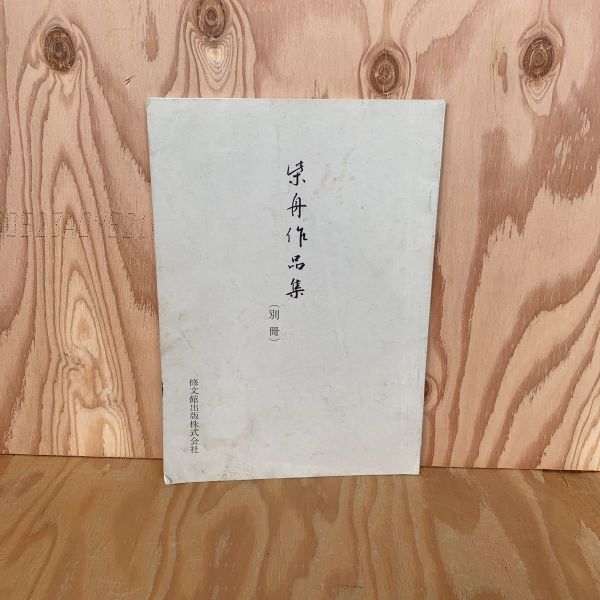 柴舟作品集
（別冊）
修文館出版株式会社